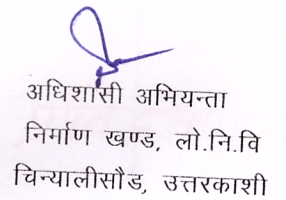 अधिशासी अभियन्ता
निर्माण खण्ड, लो.नि.वि
चिन्यालीसौड, उत्तरकाशी